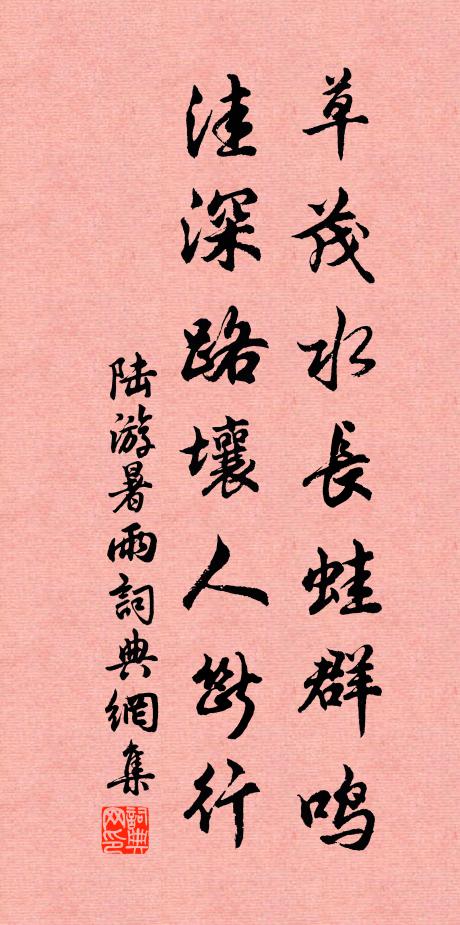 草茂水長蛙群鸣
洼深路壤人斷行
陆游暑雨詞典網集
詞典网印